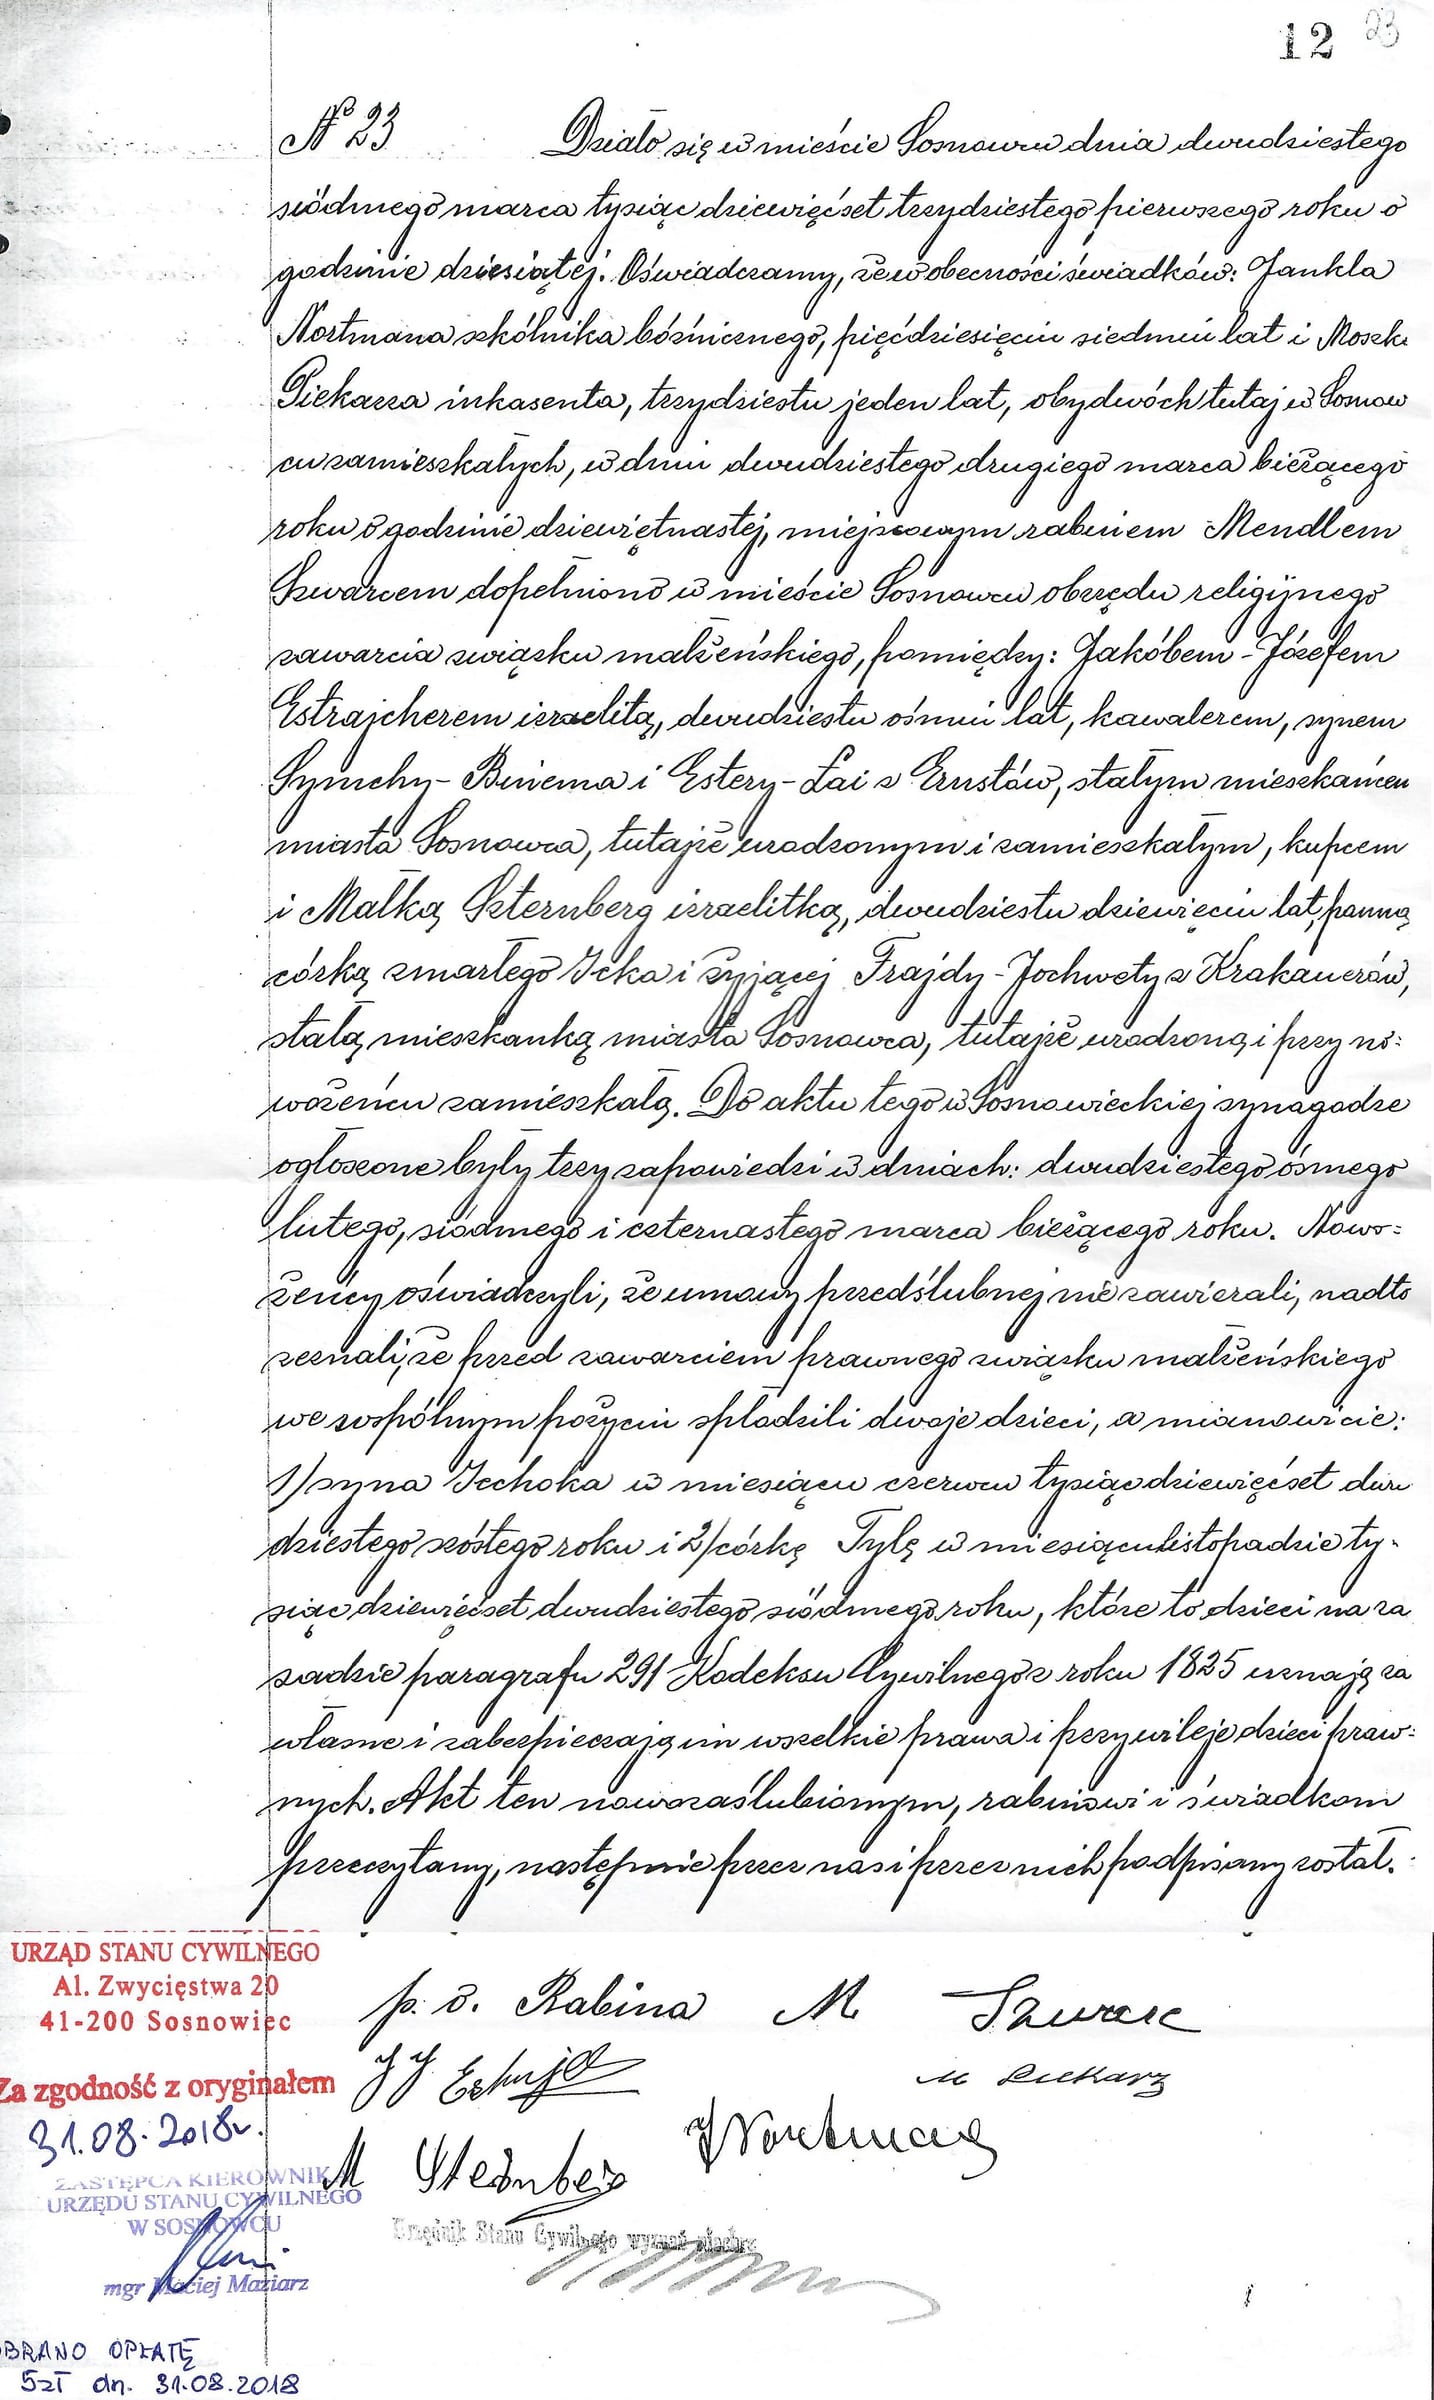 12 23
№ 23 Działo się w mieście Sosnowcu dnia dwudziestego
siódmego marca tysiąc dziewięćset trzydziestego pierwszego roku o
godzinie dziesiątej. Oświadczamy, że w obecności świadków: Jankla
Nortmana szkólnika bóżnicznego, pięćdziesięciu siedmiu lat i Moszk
Piekarza inkasenta, trzydziestu jeden lat, obydwóch tutaj w Sosnow
cu zamieszkałych, w dniu dwudziestego drugiego marca bieżącego
roku o godzinie dziewiętnastej, miejscowym rabinem Mendlem
Szwarcem dopełniono w mieście Sosnowcu obrzędu religijnego
zawarcia związku małżeńskiego, pomiędzy: Jakóbem-Józefem
Estrajcherem izraelitą, dwudziestu ośmiu lat, kawalerem, synem
Symchy-Binema i Estery-Łai z Ernstów, stałym mieszkańcem
miasta Sosnowca, tutajże urodzonym i zamieszkałym, kupcem
i Małką Szternberg izraelitką, dwudziestu dziewięciu lat, panną
córką zmarłego Icka i żyjącej Frajdy-Jochwety z Krakauerów,
stałą mieszkanką miasta Sosnowca, tutajże urodzoną i przy no=
wożeńcu zamieszkałą. Do aktu tego w Sosnowieckiej synagodze
ogłoszone były trzy zapowiedzi w dniach: dwudziestego ósmego
lutego, siódmego i czternastego marca bieżącego roku. Nowo=
żeńcy oświadczyli, że umowy przedślubnej nie zawierali, nadto
zeznali, że przed zawarciem prawnego związku małżeńskiego
we wspólnym pożyciu spłodzili dwoje dzieci, a mianowicie:
1/ syna Icchoka w miesiącu czerwcu tysiąc dziewięćset dwu
dziestego szóstego roku i 2/ córkę Tylę w miesiącu listopadzie ty-
siąc dziewięćset dwudziestego siódmego roku, które to dzieci na za
sadzie paragrafu 291 Kodeksu Cywilnego z roku 1825 uznają za
własne i zabezpieczają im wszelkie prawa i przywileje dzieci praw=
nych. Akt ten nowozaślubionym, rabinowi i świadkom
przeczytany, następnie przez nas i przez nich podpisany został.
URZĄD STANU CYWILNEGO
Al. Zwycięstwa 20
41-200 Sosnowiec
p. o. Rabina M Szwarc
M Piekarz
Za zgodność z oryginałem
31.08.2018r.
J Nortman
M Sternberg
ZASTĘPCA KIEROWNIKA
URZĘDU STANU CYWILNEGO
W SOSNOWCU
mgr Maciej Maziarz
Urzędnik Stanu Cywilnego wyznań niechrz.
OBRANO OPŁATĘ
5zł dn. 31.08.2018